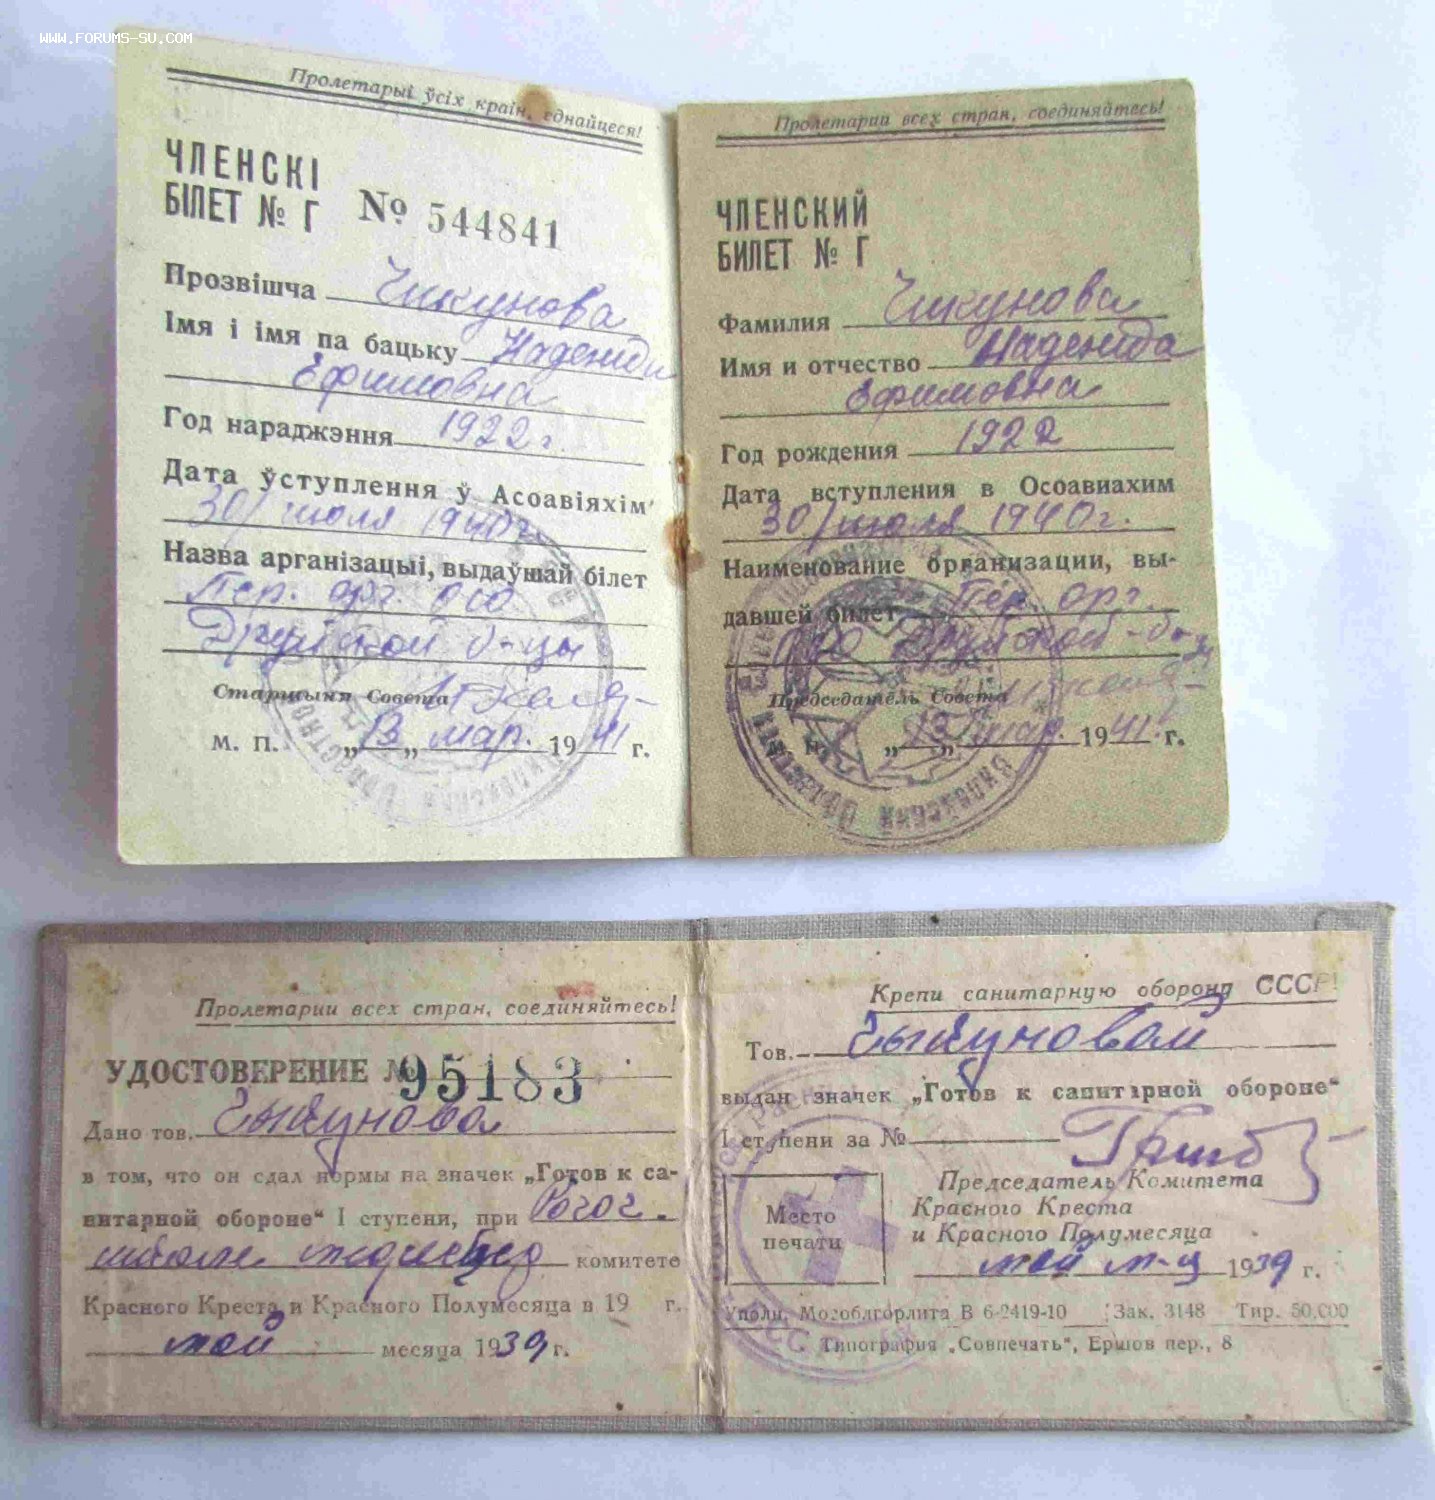 WWW.FORUMS-SU.COM
Пролетарыі ўсіх краін, еднайцеся!
ЧЛЕНСКІ
БІЛЕТ № Г № 544841
Прозвішча Чикунова
Імя і імя па бацьку Надежда
Ефимовна
Год нараджэння 1922 г.
Дата ўступлення ў Асоавіяхім
30/июля 1940 г.
Назва арганізацыі, выдаўшай білет
Пер. орг. осо
б-цы
Старшыня Совета
М. П. „13„ мар. 1941 г.
Пролетарии всех стран, соединяйтесь!
ЧЛЕНСКИЙ
БИЛЕТ № Г
Фамилия Чикунова
Имя и отчество Надежда
Ефимовна
Год рождения 1922
Дата вступления в Осоавиахим
30/июля 1940 г.
Наименование организации, вы-
давшей билет Пер. орг.
осо
Председатель Совета
М. П. „13„ мар. 1941 г.
Пролетарии всех стран, соединяйтесь!
УДОСТОВЕРЕНИЕ № 95183
Дано тов. Чыкунова
в том, что он сдал нормы на значек „Готов к са-
нитарной обороне“ I ступени, при Рогог.
школе комитете
Красного Креста и Красного Полумесяца в 19 г.
май месяца 1939 г.
Крепи санитарную оборону СССР!
Тов. Чыкуновой
выдан значек „Готов к санитарной обороне“
I ступени за №
Место
печати
Председатель Комитета
Красного Креста
и Красного Полумесяца
май м-ц 1939 г.
Уполн. Мособлгорлита В 6-2419-10 Зак. 3148 Тир. 50.000
Типография „Совпечать“, Ершов пер., 8